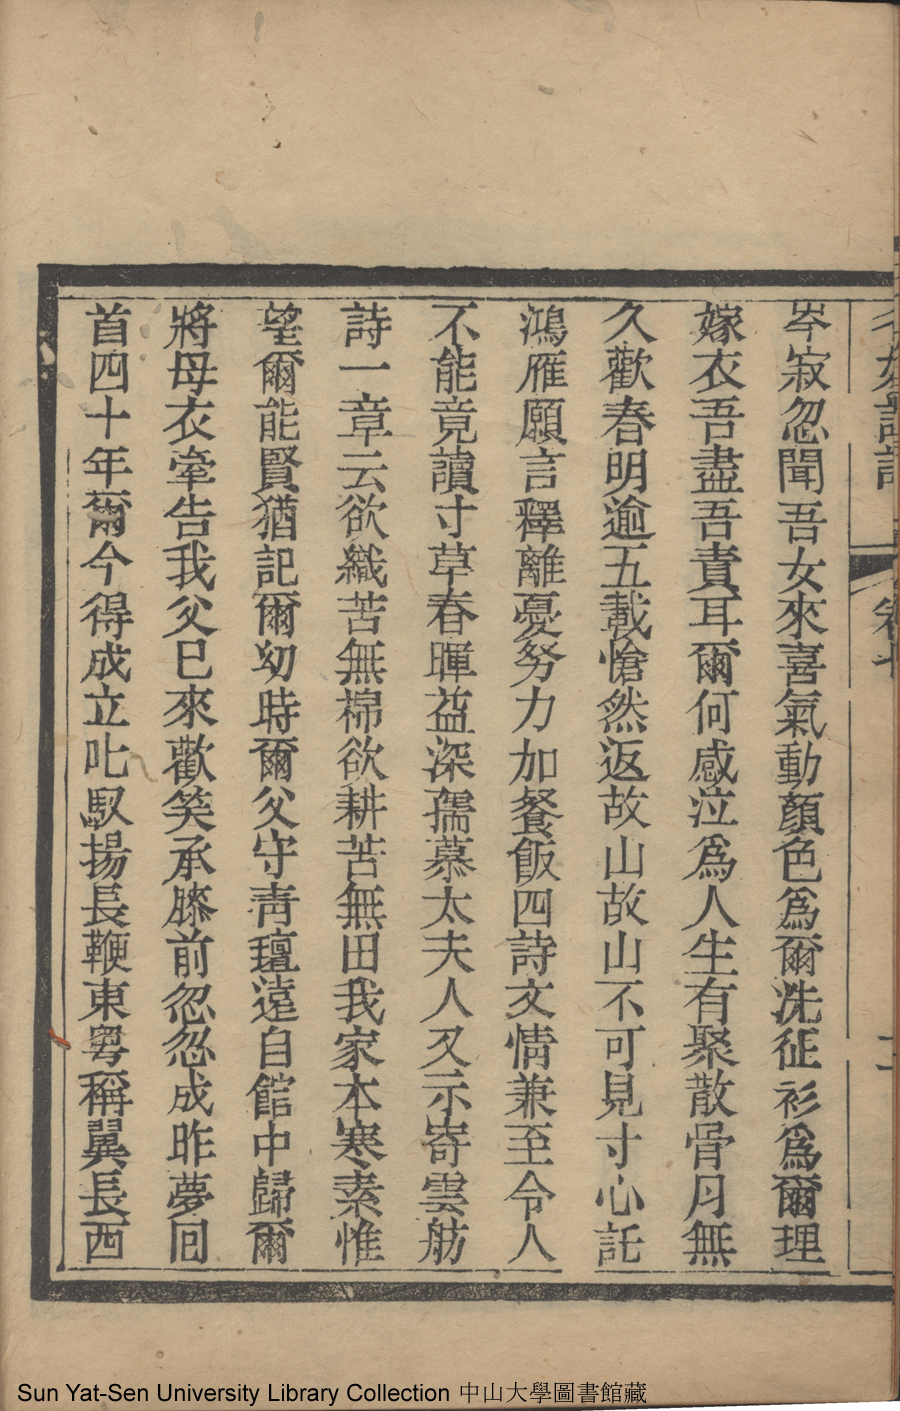 岑寂忽聞吾女來喜氣動顏色爲爾洗征衫爲爾理
嫁衣吾盡吾責耳爾何感泣爲人生有聚散骨月無
久歡春明逾五載愴然返故山故山不可見寸心託
鴻雁願言釋離憂努力加餐飯四詩文情兼至令人
不能竟讀寸草春暉益深孺慕太夫人又示寄雲舫
詩一章云欲織苦無棉欲耕苦無田我家本寒素惟
望爾能賢猶記爾幼時爾父守靑氊遠自館中歸爾
將母衣牽告我父巳來歡笑承膝前忽忽成昨夢回
首四十年爾今得成立叱馭揚長鞭東粤稱翼長西
Sun Yat-Sen University Library Collection 中山大學圖書館藏